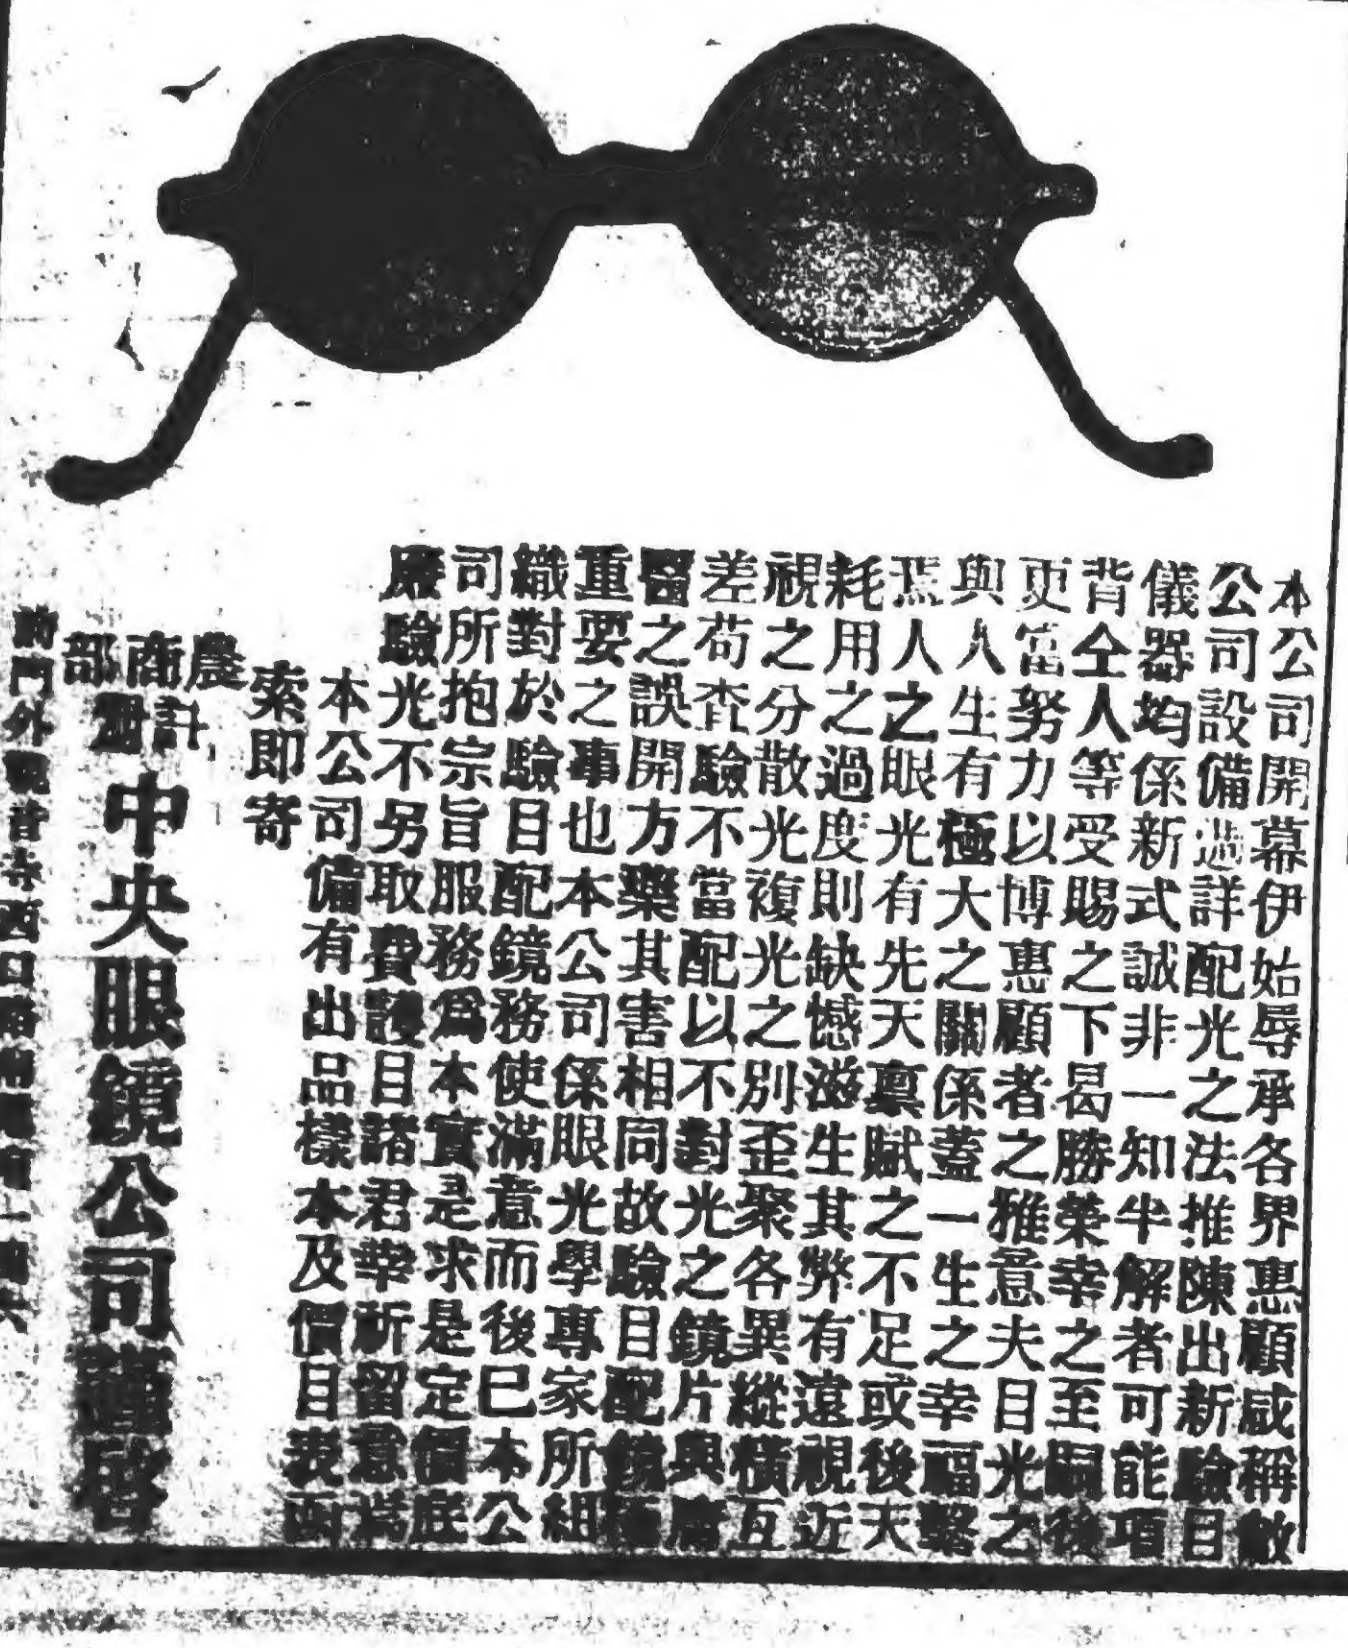 本公司開幕伊始辱承各界惠顧咸稱敝
公司設備過詳配光之法推陳出新驗目
儀器均係新式誠非一知半解者可能項
背仝人等受賜之下曷勝榮幸之至嗣後
更當努力以博惠顧者之雅意夫目光之
與人生有極大之關係蓋一生之幸福繫
焉人之眼光有先天禀賦之不足或後天
耗用之過度則缺憾滋生其弊有遠視近
視之分散光複光之別歪聚各異縱橫互
差苟查驗不當配以不對光之鏡片與庸
醫之誤開方藥其害相同故驗目配鏡極
重要之事也本公司係眼光學專家所組
織對於驗目配鏡務使滿意而後巳本公
司所抱宗旨服務爲本實是求是定價底
廉驗光不另取費護目諸君幸祈留意焉
本公司備有出品樣本及價目表函
索即寄
農商部註冊
中央眼鏡公司謹啓
前門外觀音寺西口路南